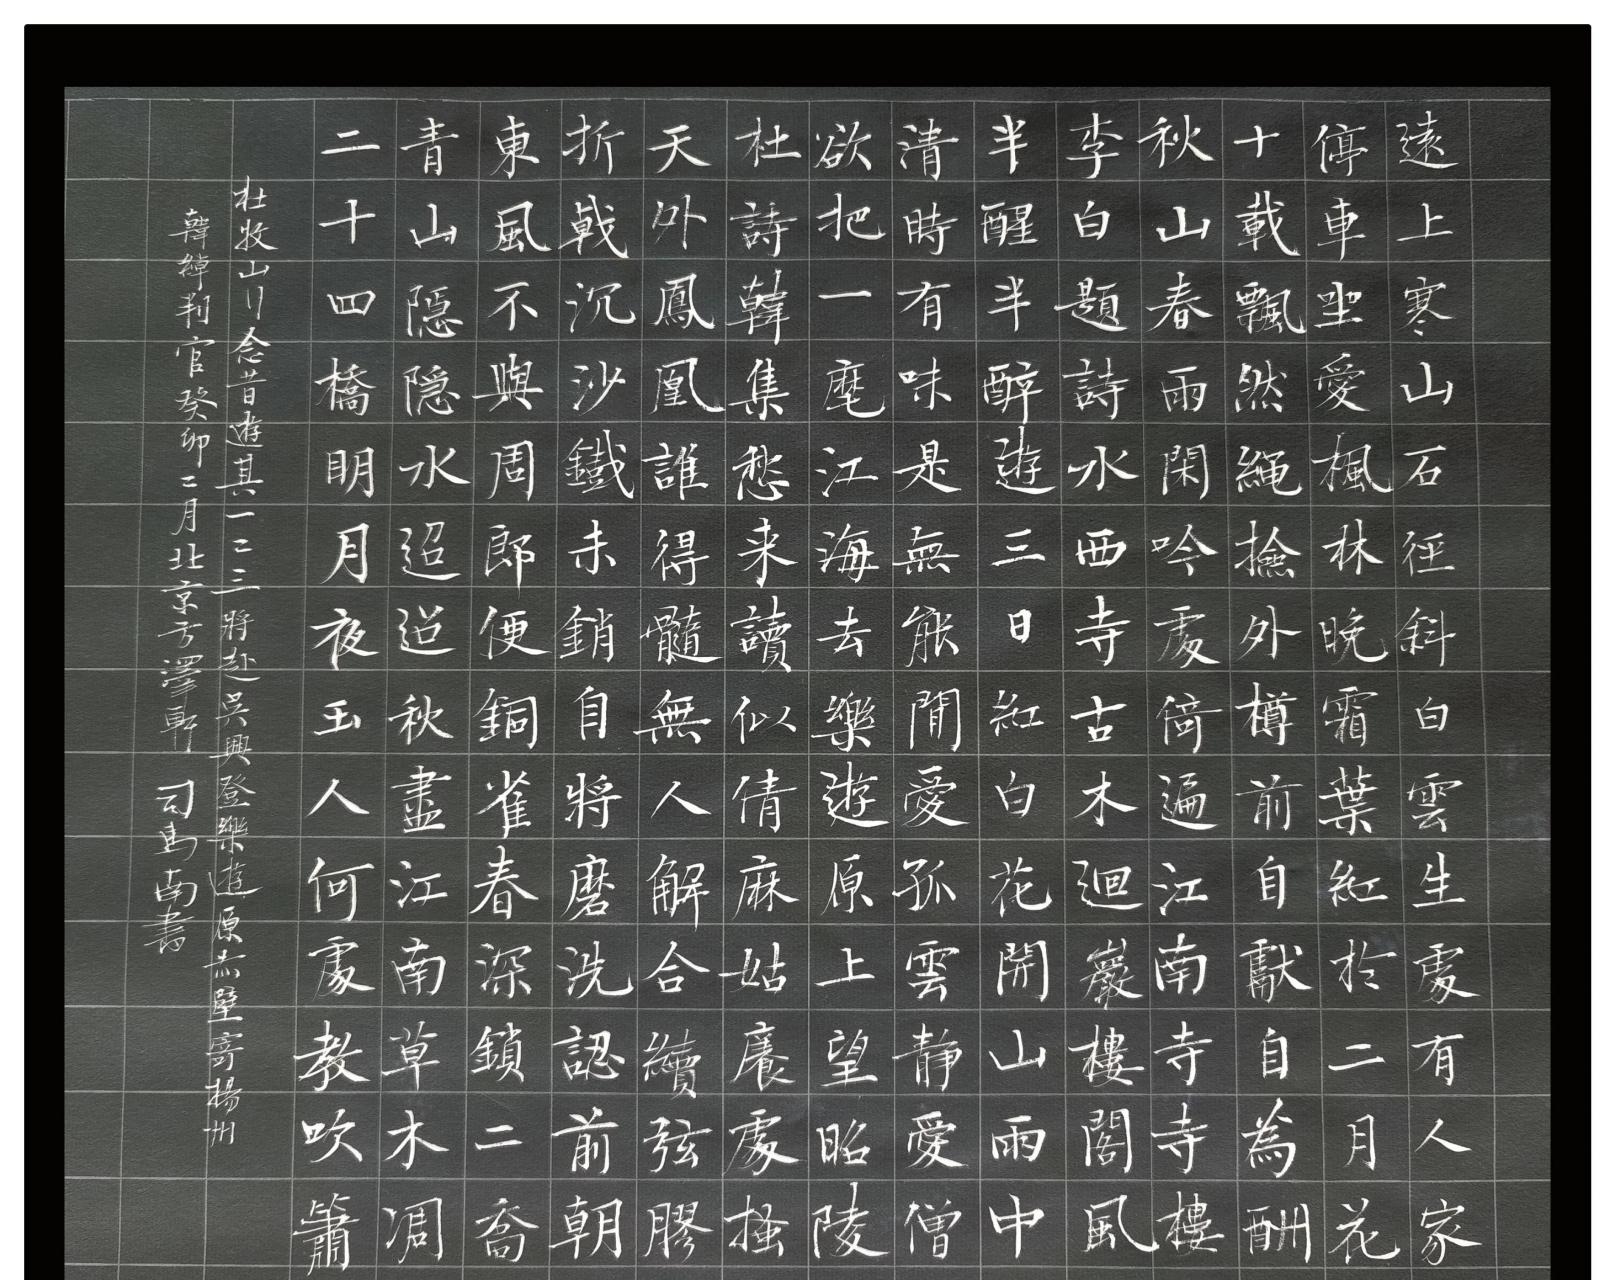 遠上寒山石徑斜白雲生處有人家
停車坐愛楓林晚霜葉紅於二月花
十載飄然繩撿外樽前自獻自為酬
秋山春雨閑吟處倚遍江南寺寺樓
李白題詩水西寺古木迴巖樓閣風
半醒半醉遊三日紅白花開山雨中
清時有味是無能閒愛孤雲靜愛僧
欲把一麾江海去樂遊原上望昭陵
杜詩韓集愁来讀似倩麻姑癢處搔
天外鳳凰誰得髓無人解合續弦膠
折戟沉沙鐵未銷自將磨洗認前朝
東風不與周郎便銅雀春深鎖二喬
青山隠隠水迢迢秋盡江南草木凋
二十四橋明月夜玉人何處教吹簫
杜牧山行念昔遊其一二三將赴吳興登樂遊原赤壁寄揚州
韓綽判官癸卯二月北京方澤軒司馬南書